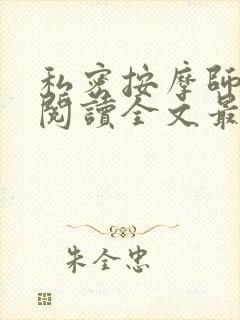 私密按摩師
閱讀全文最
朱全忠